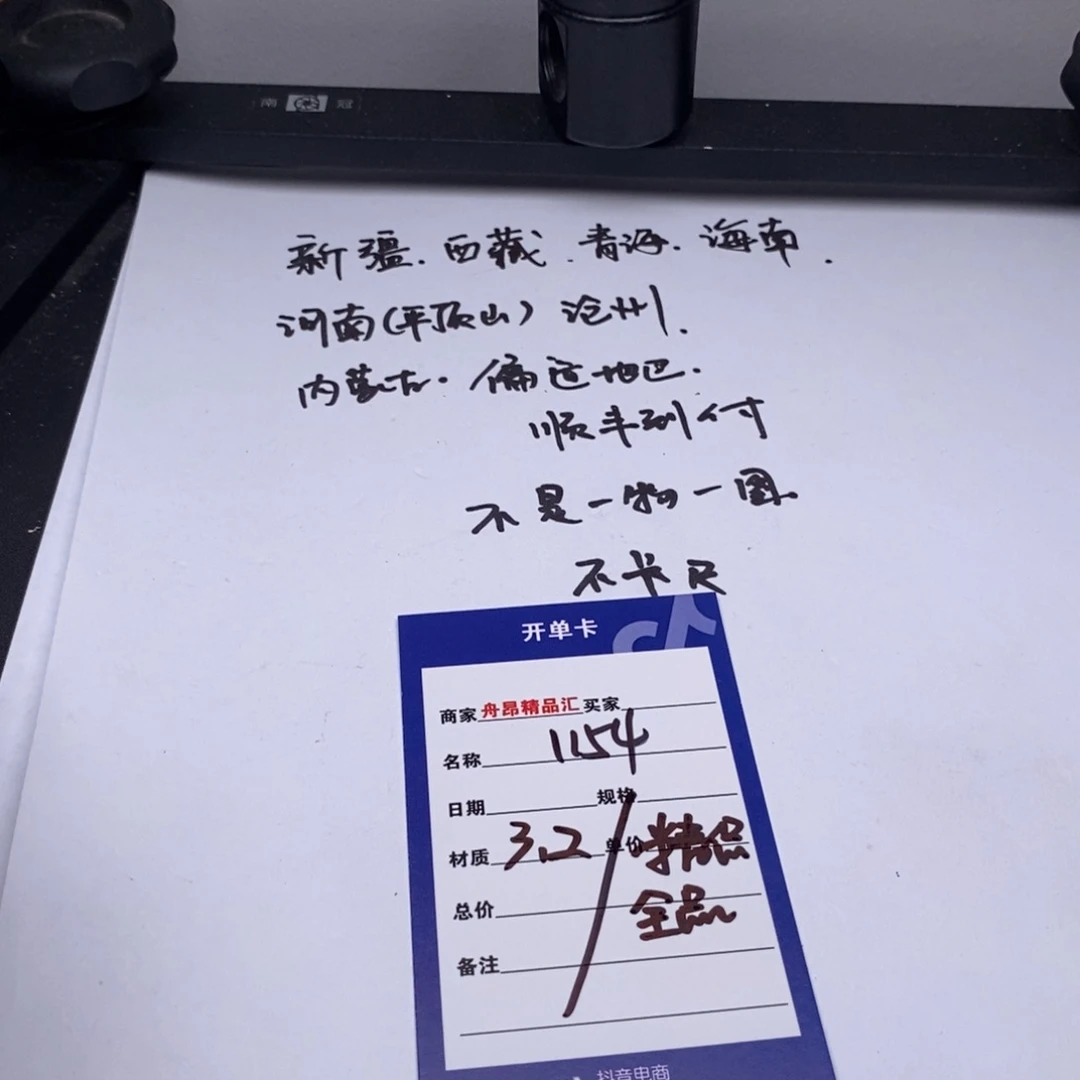 南 冠
新疆.西藏.青海.海南.
河南(平顶山)沧州.
内蒙古.偏远地区.
顺丰到付
不是一物一图.
不卡尺
开单卡
商家 舟昂精品汇 买家
名称 1154
日期 规格
材质 3.2 单价 精品
总价 全品
备注
抖音电商